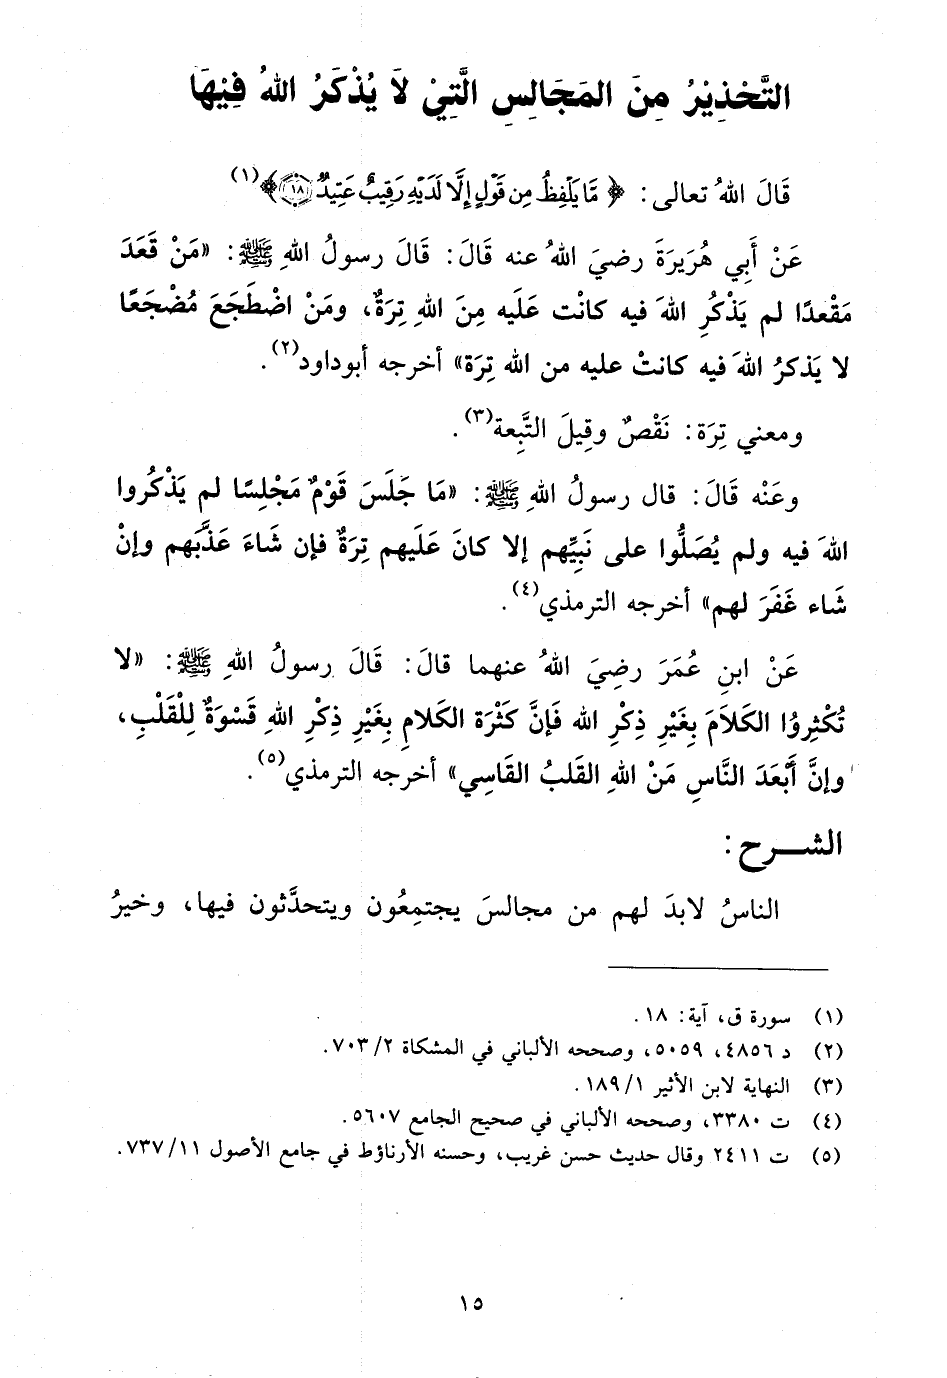 التَّحْذِيْرُ مِنَ المَجَالِسِ الَّتِيْ لاَ يُذْكَرُ اللهُ فِيْهَا
قَالَ اللهُ تعالى: ﴿ مَّا يَلْفِظُ مِن قَوْلٍ إِلَّا لَدَيْهِ رَقِيبٌ عَتِيدٌ ١٨ ﴾(١)
عَنْ أَبِي هُرَيرَةَ رضيَ اللهُ عنه قَالَ: قَالَ رسولُ اللهِ ﷺ: «مَنْ قَعَدَ
مَقْعدًا لم يَذْكُرِ اللهَ فيه كانْت عَلَيه مِنَ اللهِ تِرَةٌ، ومَنْ اضْطَجَعَ مُضْجَعًا
لا يَذكرُ اللهَ فيه كانتْ عليه من الله تِرَة» أخرجه أبوداود(٢).
ومعني تِرَة: نَقْصٌ وقِيلَ التَّبِعة(٣).
وعَنْه قَالَ: قال رسولُ اللهِ ﷺ: «مَا جَلَسَ قَوْمٌ مَجْلِسًا لم يَذْكُروا
اللهَ فيه ولم يُصَلُّوا على نَبِيِّهم إلا كانَ عَلَيهم تِرَةٌ فإن شَاءَ عَذَّبَهم وإنْ
شَاء غَفَرَ لهم» أخرجه الترمذي(٤).
عَنْ ابنِ عُمَرَ رضِيَ اللهُ عنهما قالَ: قَالَ رسولُ اللهِ ﷺ: «لا
تُكْثِرُوا الكَلاَمَ بِغَيْرِ ذِكْرِ الله فَإنَّ كَثْرَة الكَلامِ بِغَيْرِ ذِكْرِ اللهِ قَسْوَةٌ لِلْقَلْبِ،
وإنَّ أَبْعَدَ النَّاسِ مَنْ اللهِ القَلبُ القَاسِي» أخرجه الترمذي(٥).
الشـــرح:
الناسُ لابدَ لهم من مجالسَ يجتمِعُون ويتحدَّثون فيها، وخيرُ
(١) سورة ق، آية: ١٨.
(٢) د ٤٨٥٦، ٥٠٥٩، وصححه الألباني في المشكاة ٢/ ٧٠٣.
(٣) النهاية لابن الأثير ١/ ١٨٩.
(٤) ت ٣٣٨٠، وصححه الألباني في صحيح الجامع ٥٦٠٧.
(٥) ت ٢٤١١ وقال حديث حسن غريب، وحسنه الأرناؤط في جامع الأصول ١١/ ٧٣٧.
١٥